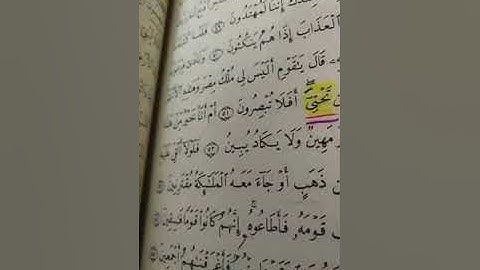 إِنَّنَا لَمُهْتَدُونَ ۝٤٩ فَلَمَّا
الْعَذَابَ إِذَا هُمْ يَنكُثُونَ ۝٥٠ وَنَادَىٰ
قَالَ يَٰقَوْمِ أَلَيْسَ لِى مُلْكُ مِصْرَ وَهَٰذِهِ
تَحْتِىٓ أَفَلَا تُبْصِرُونَ ۝٥١ أَمْ أَنَا۠ خَيْرٌ مِّنْ
مَهِينٌ وَلَا يَكَادُ يُبِينُ ۝٥٢ فَلَوْلَآ أُلْقِىَ عَلَيْهِ
ذَهَبٍ أَوْ جَآءَ مَعَهُ الْمَلَٰٓئِكَةُ مُقْتَرِنِينَ ۝٥٣
قَوْمَهُۥ فَأَطَاعُوهُ إِنَّهُمْ كَانُوا۟ قَوْمًا فَٰسِقِينَ ۝٥٤
فَأَغْرَقْنَٰهُمْ أَجْمَعِينَ ۝٥٥